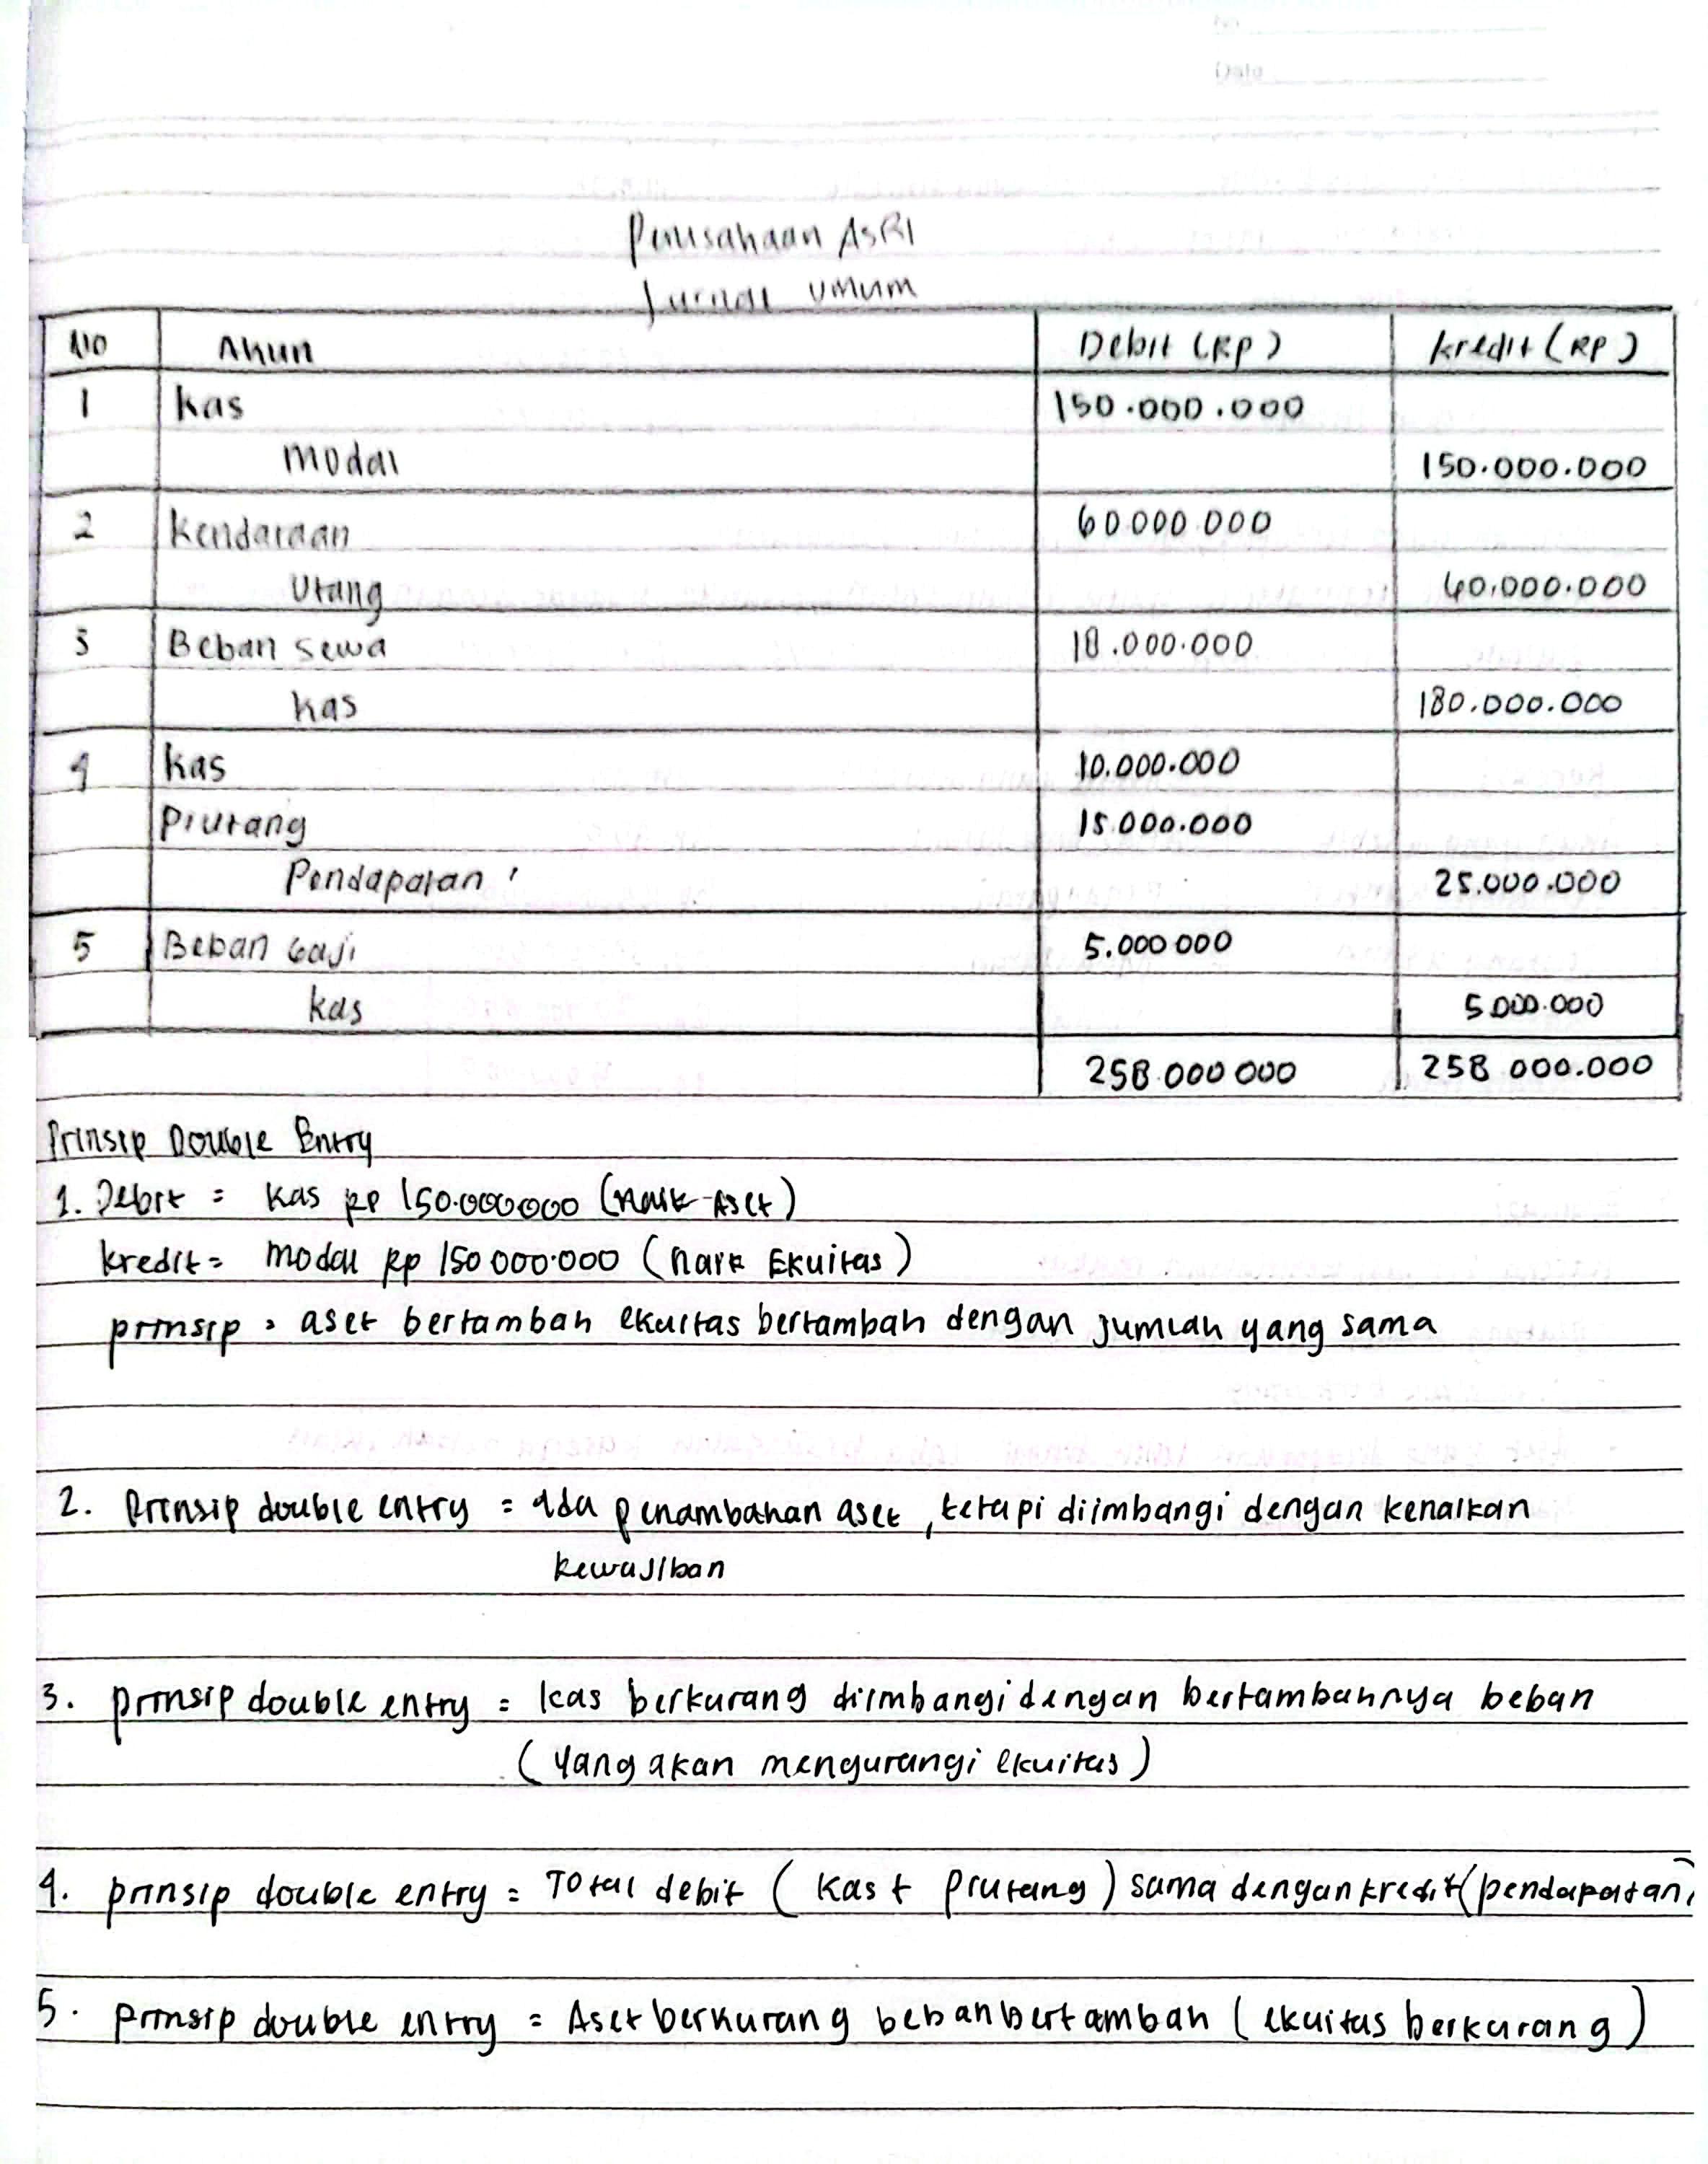 Perusahaan ASRI
Jurnal Umum
No Akun Debit (Rp) kredit (RP)
1 kas 150.000.000
modal 150.000.000
2 kendaraan 60.000.000
Utang 60.000.000
3 Beban sewa 18.000.000
kas 180.000.000
4 kas 10.000.000
Piutang 15.000.000
Pendapatan 25.000.000
5 Beban Gaji 5.000 000
kas 5.000.000
258.000 000 258 000.000
Prinsip Double Entry
1. Debit = Kas Rp 150.000000 (Naik Aset)
kredit = modal Rp 150 000.000 (naik Ekuitas)
prinsip = aset bertambah ekuitas bertambah dengan jumlah yang sama
2. Prinsip double entry = Ada penambahan aset, tetapi diimbangi dengan kenaikan
kewajiban
3. prinsip double entry = kas berkurang diimbangi dengan bertambahnya beban
(yang akan mengurangi ekuitas)
4. prinsip double entry = Total debit (kas + piutang) sama dengan kredit (pendapatan)
5. prinsip double entry = Aset berkurang beban bertambah (ekuitas berkurang)